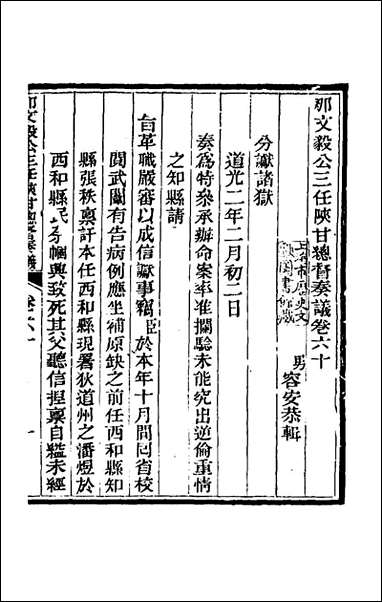 那文毅公三任陝甘總督奏議卷六十
男 容安恭輯
分讞諸獄
道光二年二月初二日
奏爲特叅承辦命案率准攔驗未能究出逆倫重情
之知縣請
旨革職嚴審以成信讞事竊臣於本年十月間囘省校
閱武闈有告病例應坐補原缺之前任西和縣知
縣張秩稟訐本任西和縣現署狄道州之潘煜於
西和縣民 幗興致死其父聽信捏稟自縊未經
那文毅公三任陝甘總督奏議
卷六十
一